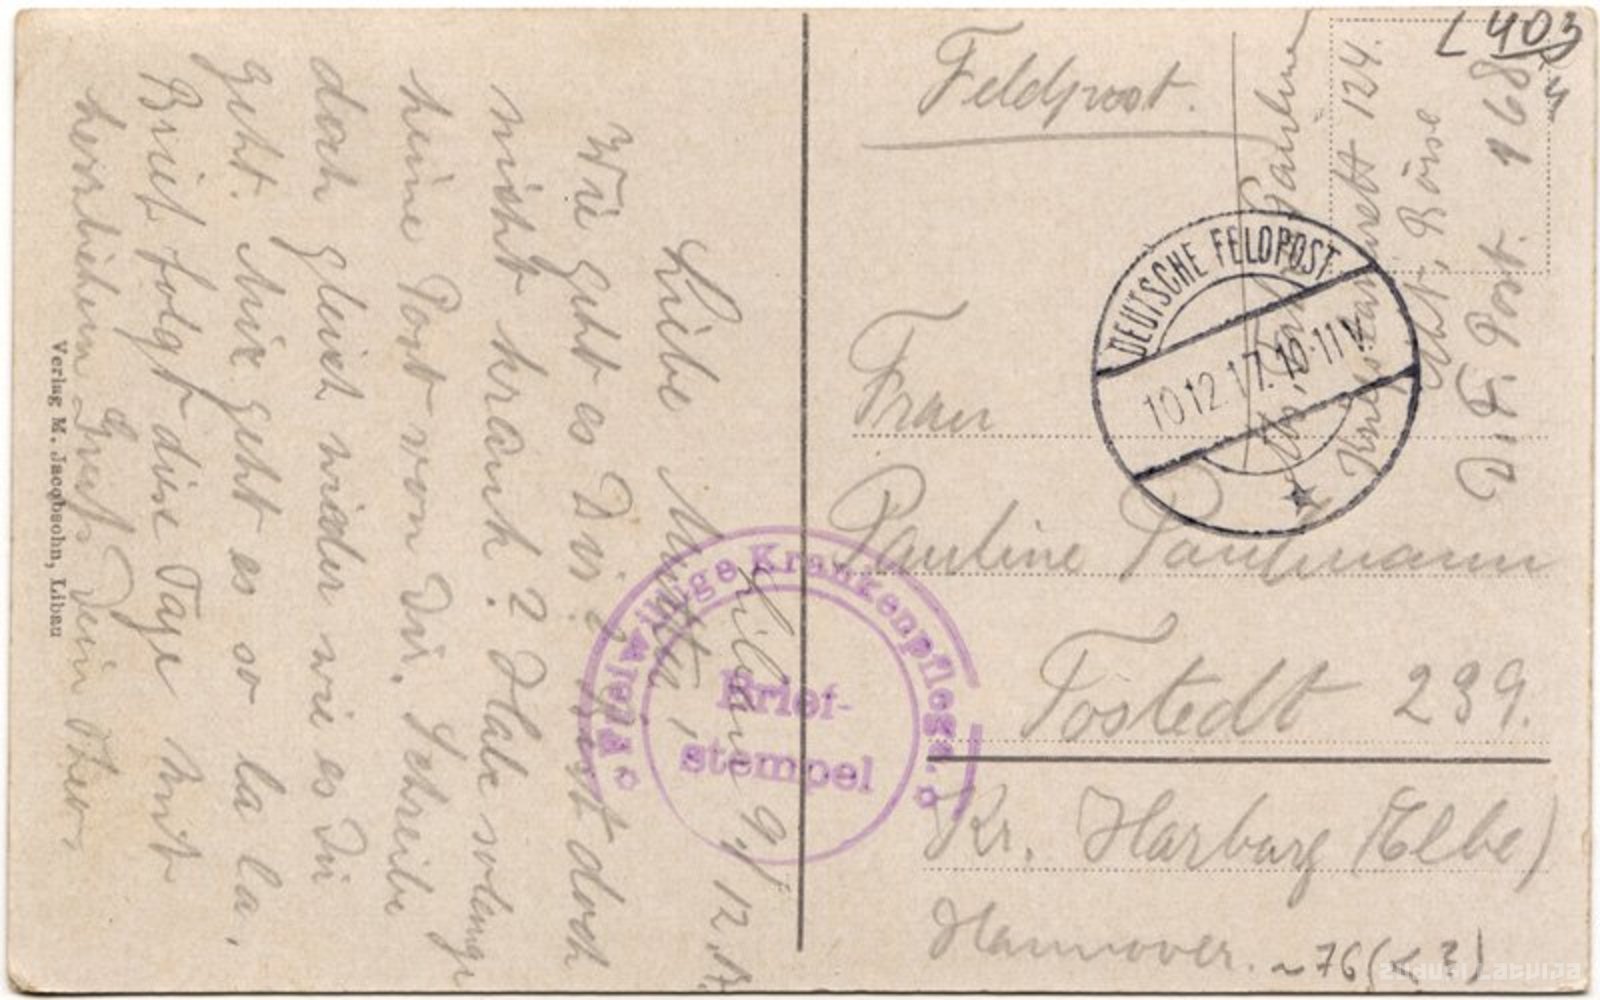 Libau 9/12.17.
Liebe Mutter,
Wie geht es Dir? bist doch
nicht krank? Habe solange
keine Post von Dir. Schreibe
doch gleich wieder wie es Dir
geht. Mir geht es so la la.
Brief folgt diese Tage mit
herzlichem Gruß Dein Theo.
Verlag M. Jacobsohn, Libau
Freiwillige Krankenpflege.
Brief-
stempel
Feldpost.
DEUTSCHE FELDPOST
10 12 17. 10-11 V.
Frau
Pauline Paulmann
Tostedt 239.
Kr. Harburg (Elbe)
Hannover.
Abs.
Paulmann
Kriegslazarett 124.
Abt. Börse
D. F. Post. 168
L 403
~76 (L 3)
zudusi Latvija